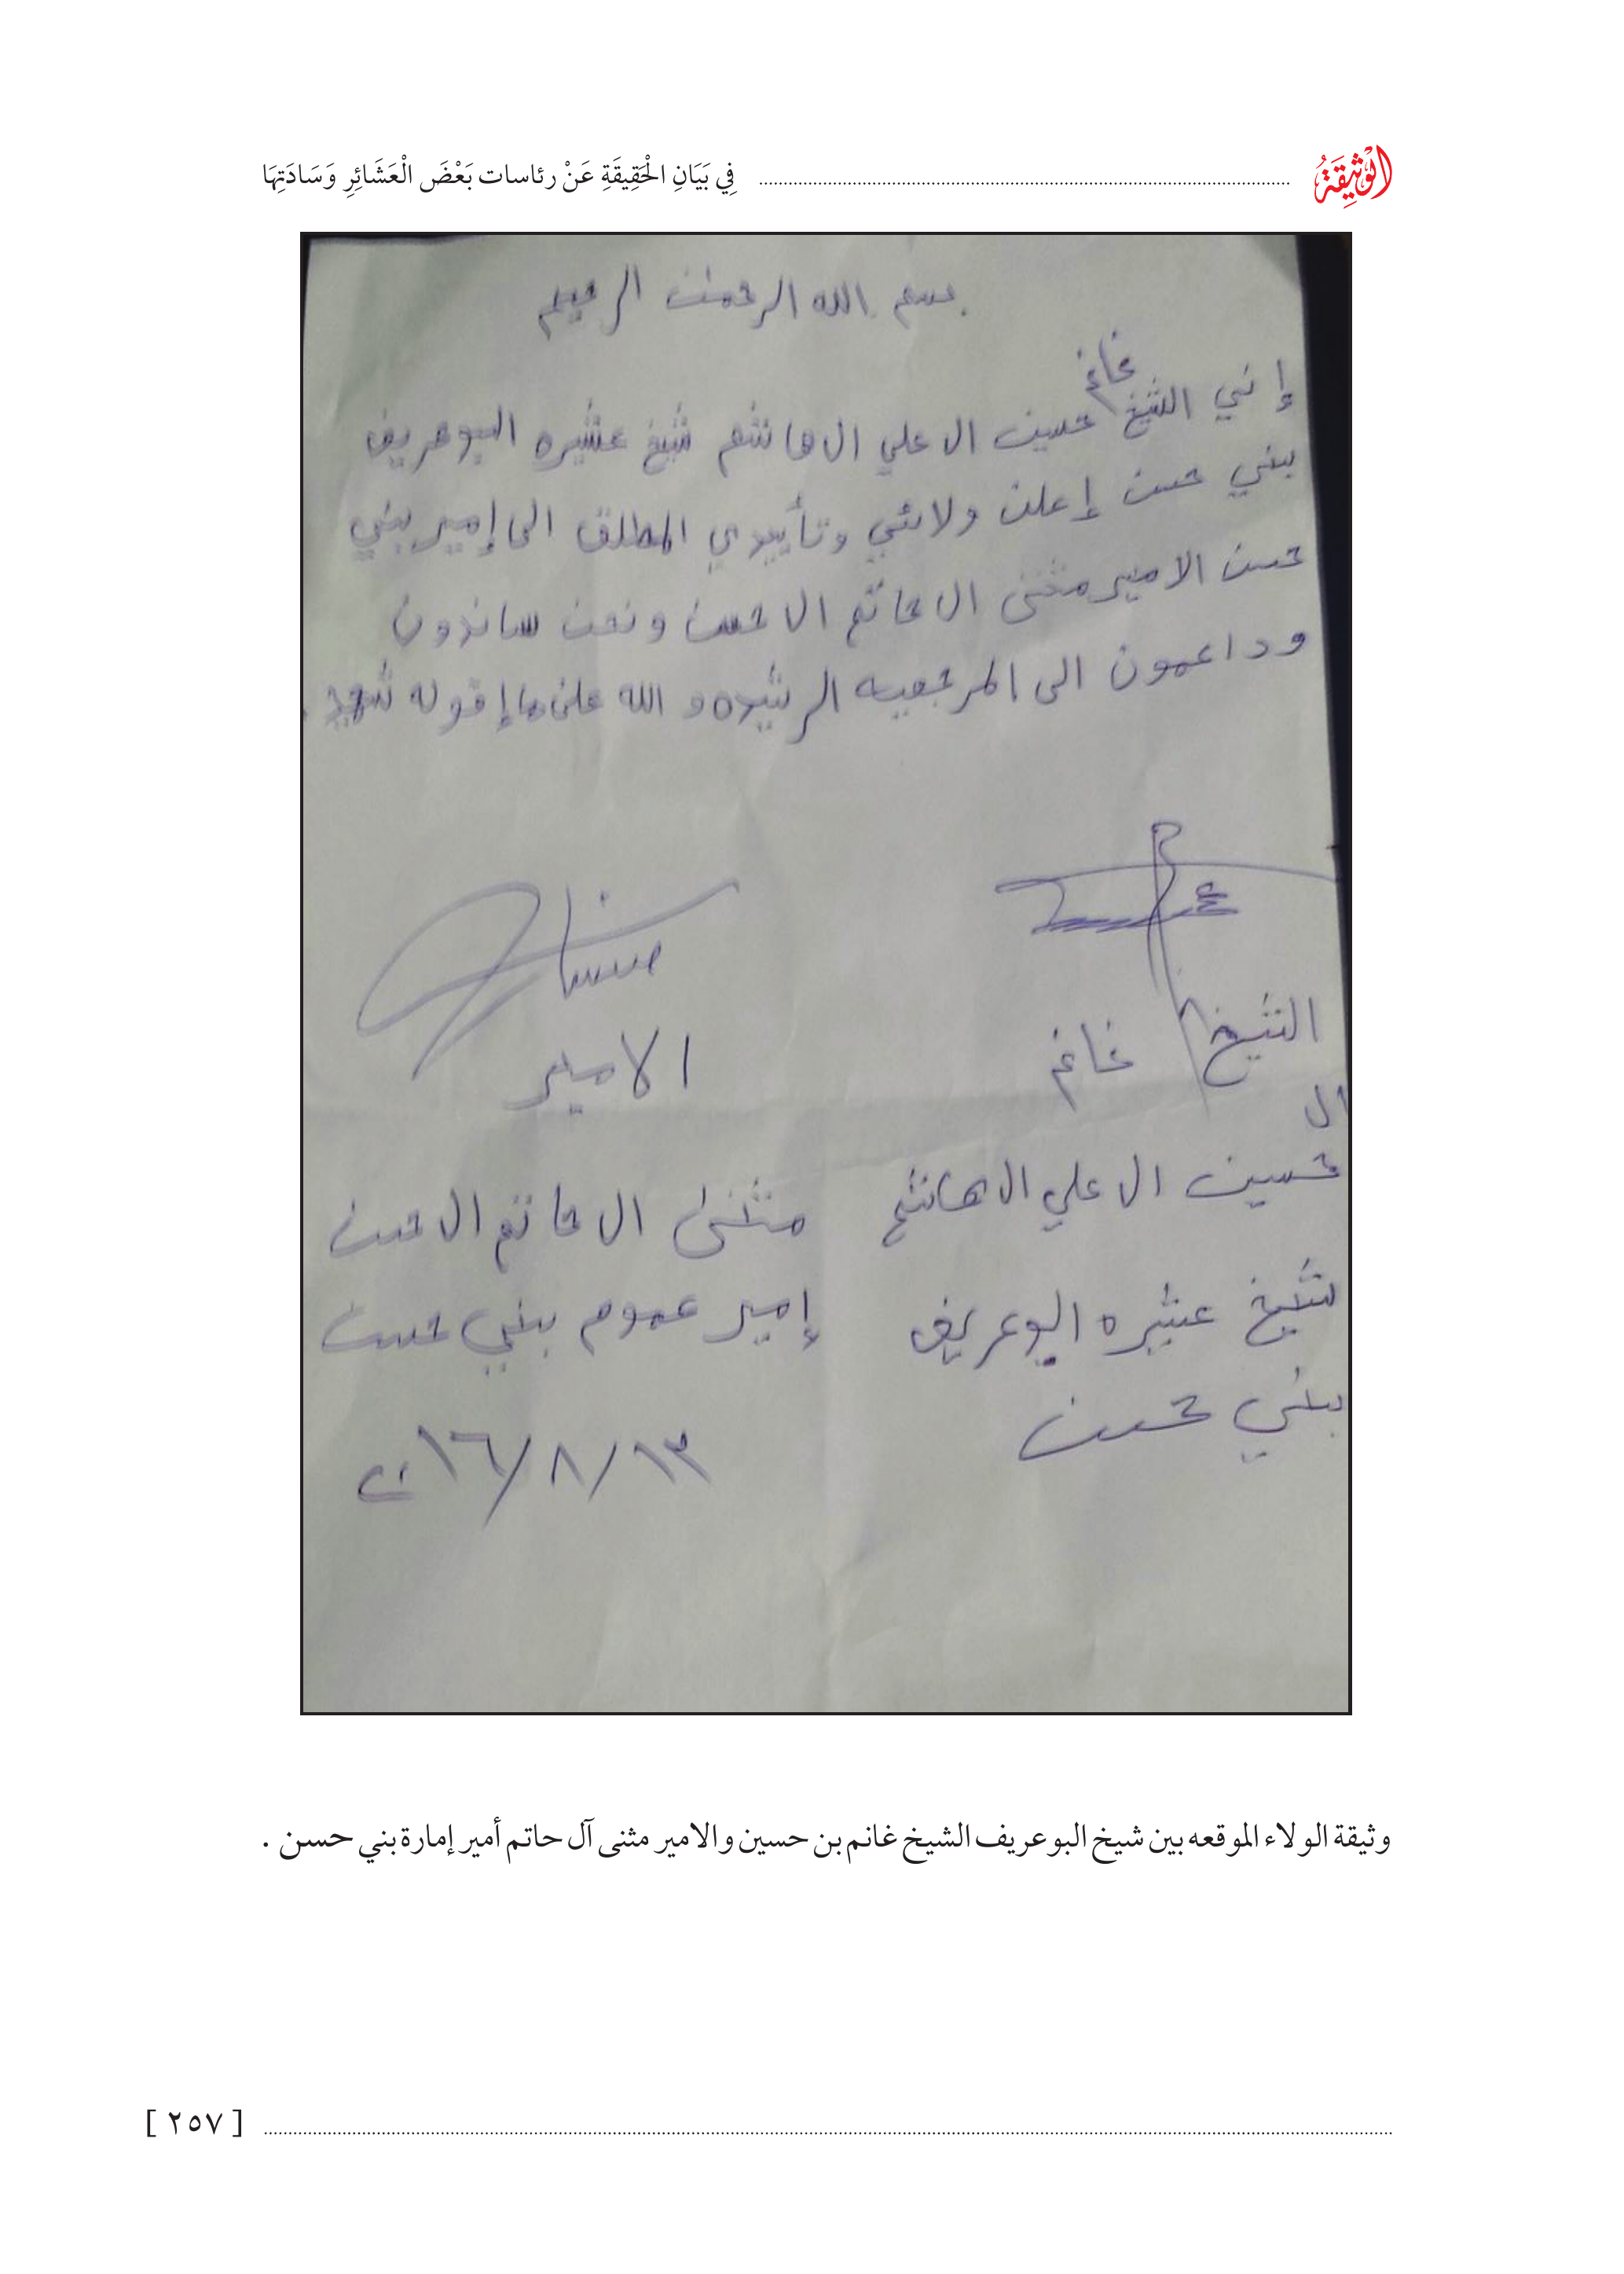 الْوَثِيقَةُ
فِي بَيَانِ الْحَقِيقَةِ عَنْ رئاسات بَعْضَ الْعَشَائِرِ وَسَادَتِهَا
بسم الله الرحمن الرحيم
إني الشيخ غانم حسين ال علي ال هاشم شيخ عشيره البوعريف
بني حسن إعلن ولائي وتأييدي المطلق الى إمير بني
حسن الامير مثنى ال حاتم ال حسن ونحن ساندون
وداعمون الى المرجعيه الرشيده والله على ما إقوله شهيد.
الشيخ غانم
ال
حسين ال علي ال هاشم
شيخ عشيره البوعريف
بني حسن
الامير
مثنى ال حاتم ال حسن
إمير عموم بني حسن
٢٠١٦/٨/١٣
وثيقة الولاء الموقعه بين شيخ البوعريف الشيخ غانم بن حسين والامير مثنى آل حاتم أمير إمارة بني حسن .
[ ٢٥٧ ]